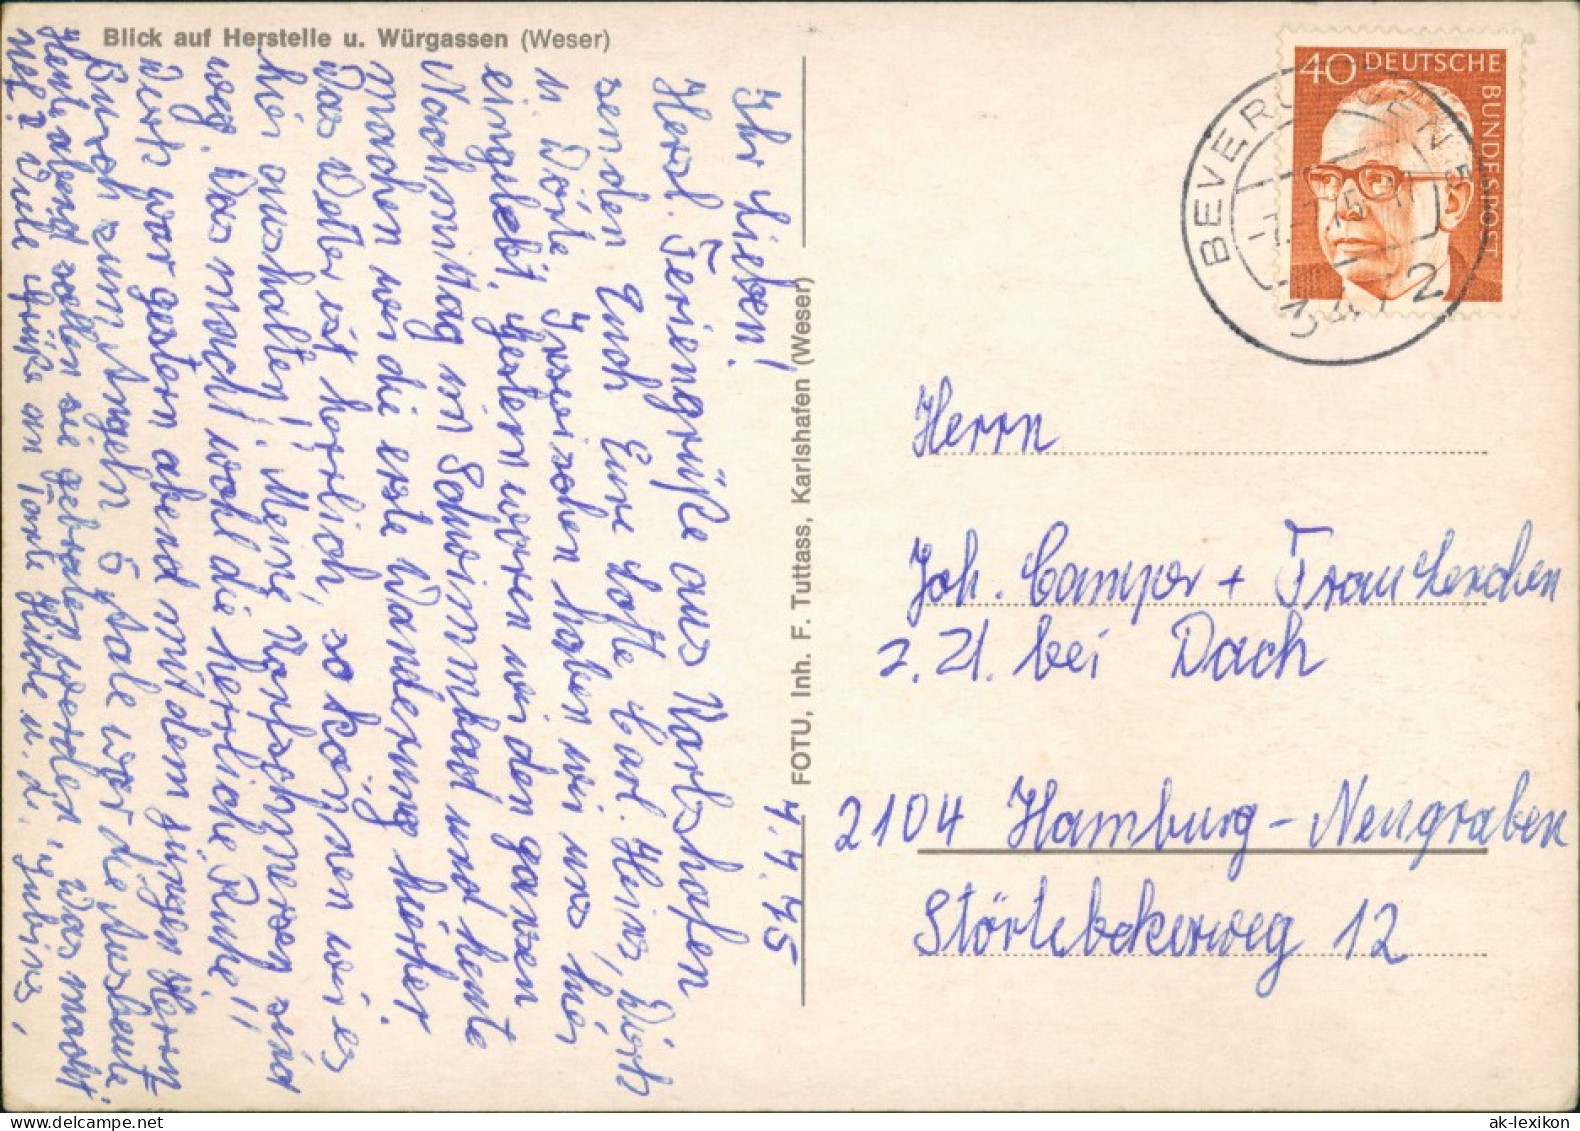 Blick auf Herstelle u. Würgassen (Weser)
7.7.75
Ihr Lieben!
Herzl. Feriengrüße aus Karlshafen
senden Euch Eure Lotte, Carl-Heinz, Dierk
u. Dörte. Inzwischen haben wir uns hier
eingelebt. Gestern waren wir den ganzen
Nachmittag im Schwimmbad und heute
machen wir die erste Wanderung hierher.
Das Wetter ist herrlich, so können wir es
hier aushalten! Meine Kopfschmerzen sind
weg. Das macht wohl die herrliche Ruhe!!
Dierk war gestern abend mit dem jungen Herrn
zum Angeln. 5 Aale war die Ausbeute.
Heute abend sollen sie gebraten werden. Was macht
Viele Grüße an Tante Hilde u.
FOTU, Inh. F. Tuttass, Karlshafen (Weser)
40 DEUTSCHE BUNDESPOST
BEVERUNGEN
2
Herrn
Joh. Camper + Frau Lerchen
z. Zt. bei Dach
2104 Hamburg-Neugraben
Störtebekerweg 12
ak-lexikon.com